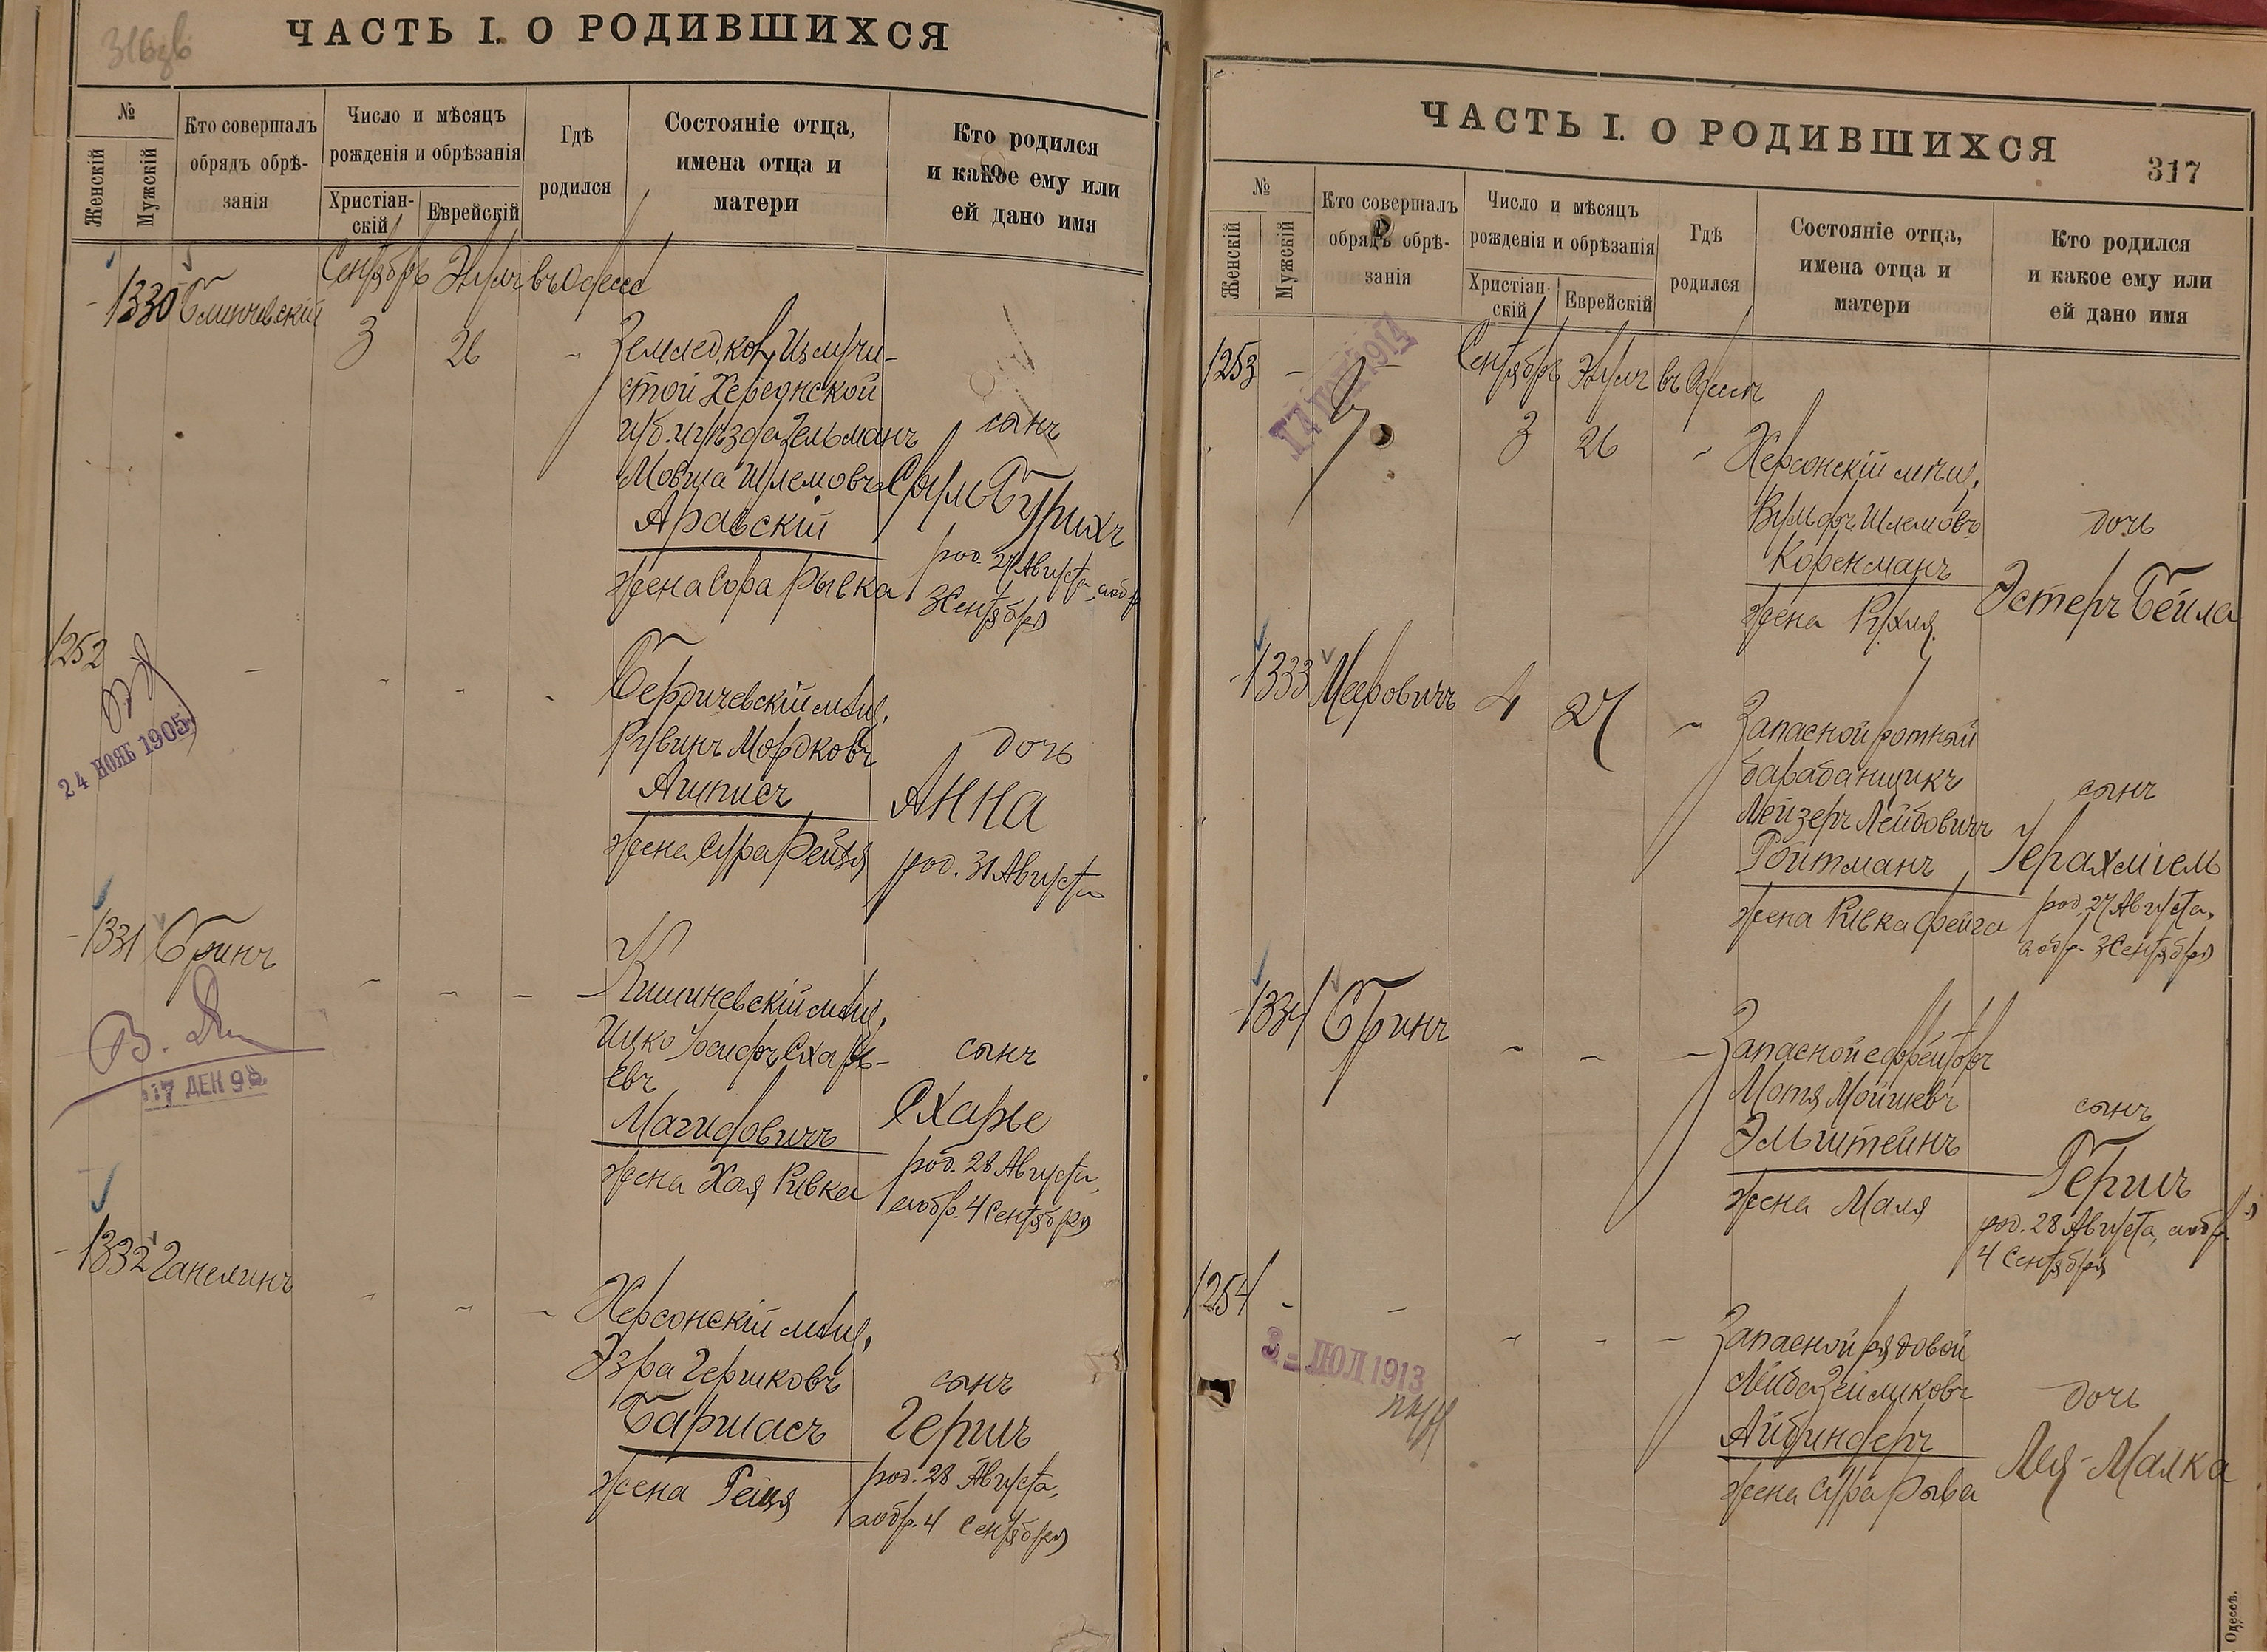 316 зв
ЧАСТЬ I. О РОДИВШИХСЯ
№
Женскій
Мужскій
Кто совершалъ
обрядъ обрѣ-
занія
Число и мѣсяцъ
рожденія и обрѣзанія
Христіан-
скій
Еврейскій
Гдѣ
родился
Состояніе отца,
имена отца и
матери
Кто родился
и какое ему или
ей дано имя
Сентябрь Элулъ въ Одессѣ
- 1330
3 26 -
Земледѣ
стой Херсонской
губ. и уѣзда Зельманъ
Мовша Шлемовъ
Аравскій
жена Сора Рывка
сынъ
Сруль Бурихъ
род. 27 Августа, а обр.
3 Сентября
1252 - - - -
24 НОЯБ 1905
Бердичевскій мѣщ.
Рувинъ Мордковъ
жена Сура Рейзя
дочь
Анна
род. 31 Августа
- 1331 Бринъ - - -
17 ДЕК 98
Кишиневскій мѣщ.
Ицко Іосифъ Схарь-
евъ
Магидовичъ
жена Хая Ривка
сынъ
Схарье
род. 28 Августа,
а обр. 4 Сентября
- 1332 Ганелинъ - - -
Херсонскій мѣщ.
Эзра Гершковъ
Баршасъ
жена Рейзя
сынъ
Гершъ
род. 28 Августа,
а обр. 4 Сентября
ЧАСТЬ I. О РОДИВШИХСЯ
317
№
Женскій
Мужскій
Кто совершалъ
обрядъ обрѣ-
занія
Число и мѣсяцъ
рожденія и обрѣзанія
Христіан-
скій
Еврейскій
Гдѣ
родился
Состояніе отца,
имена отца и
матери
Кто родился
и какое ему или
ей дано имя
Сентябрь Элулъ въ Одессѣ
1253 - -
1914
3 26 -
Херсонскій мѣщ.
Вульфъ Шлемовъ
Коренманъ
жена Рухля
дочь
Эстеръ Бейла
- 1333 Меровичъ 4 27 -
Запасной ротный
барабанщикъ
Лейзеръ Лейбовичъ
Ройтманъ
жена Ривка Фейга
сынъ
Іерахміель
род. 27 Августа,
а обр. 3 Сентября
- 1334 Бринъ - - -
Запасной ефрейторъ
Мотя Мошковъ
Эльштейнъ
жена Маля
сынъ
Гершъ
род. 28 Августа, а обр.
4 Сентября
1254 - - - - -
3 - ІЮЛ 1913
Запасной рядовой
Лейба Зейликовъ
Айбиндеръ
жена Сура Рыва
дочь
Лея-Малка
Одессѣ.